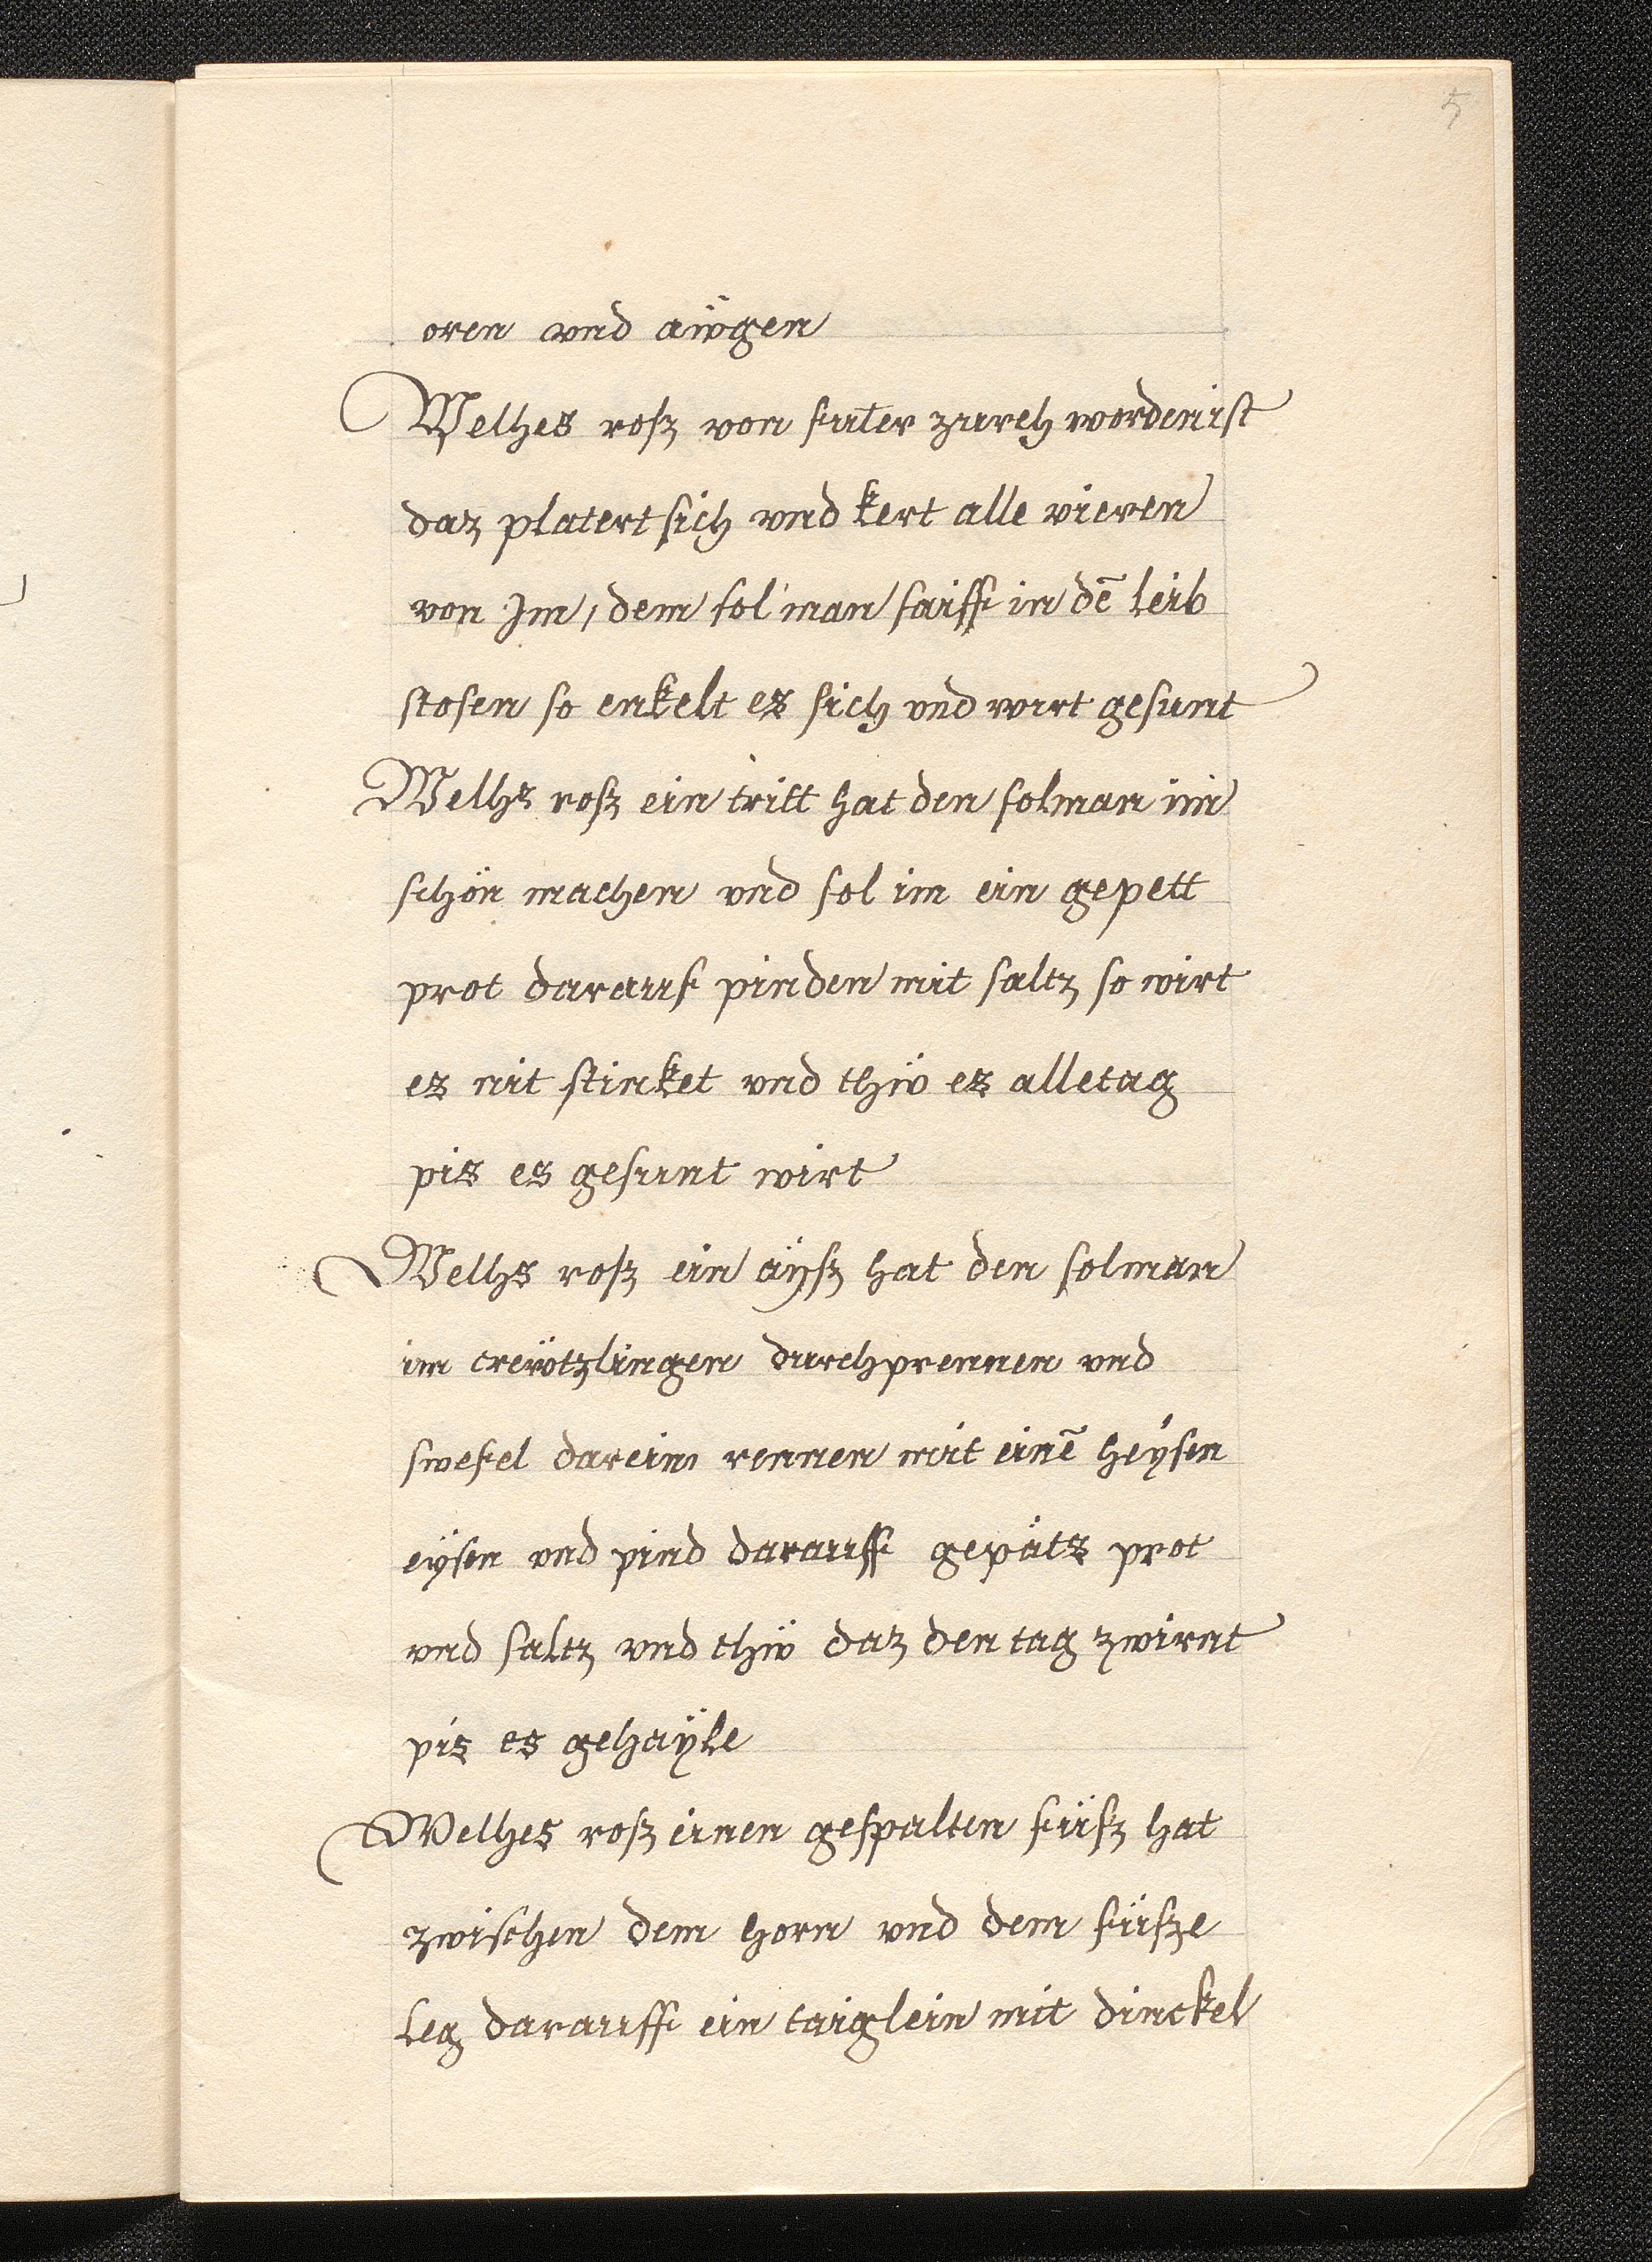 5
oren vnd aẅgen
Welhes rosz von futer zurch worden ist
daz platert sich vnd kert alle vieren
von Jm, dem sol man saiff in dē leib
stosen so enkelt ez sich vnd wirt gesunt
Welhs rosz ein tritt hat den solman im
schön machen vnd sol im ein gepett
prot darauf pinden mit saltz so wirt
ez nit stinket vnd thẅ ez alletag
piz es gesunt wirt
Welhs rosz ein aÿsz hat den solman
im creẅtzlingen durchprennen vnd
swefel darein rennen mit einē heÿsen
eÿsen vnd pind darauff gepätz prot
vnd saltz vnd thẅ daz den tag zwirnt
piz es gehaÿle
Welhes rosz einen gespalten füsz hat
zwischen dem horn vnd dem füsze
leg darauff ein taiglein mit dinckel